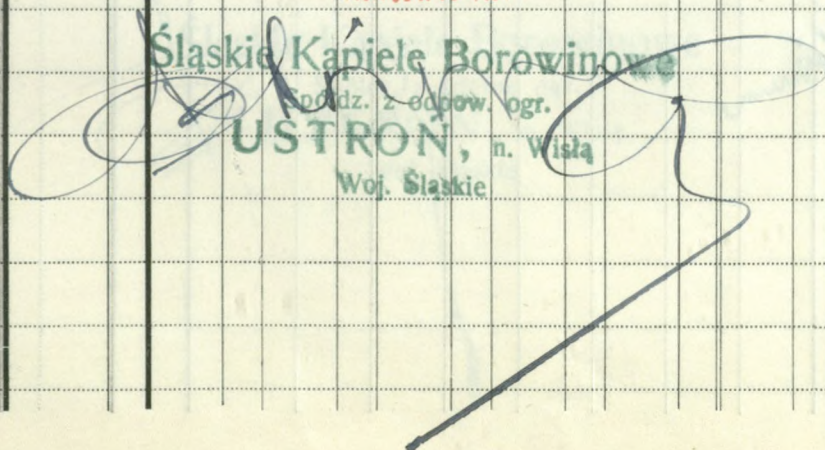 Śląskie Kąpiele Borowinowe
Spółdz. z odpow. ogr.
USTROŃ, n. Wisłą
Woj. Śląskie